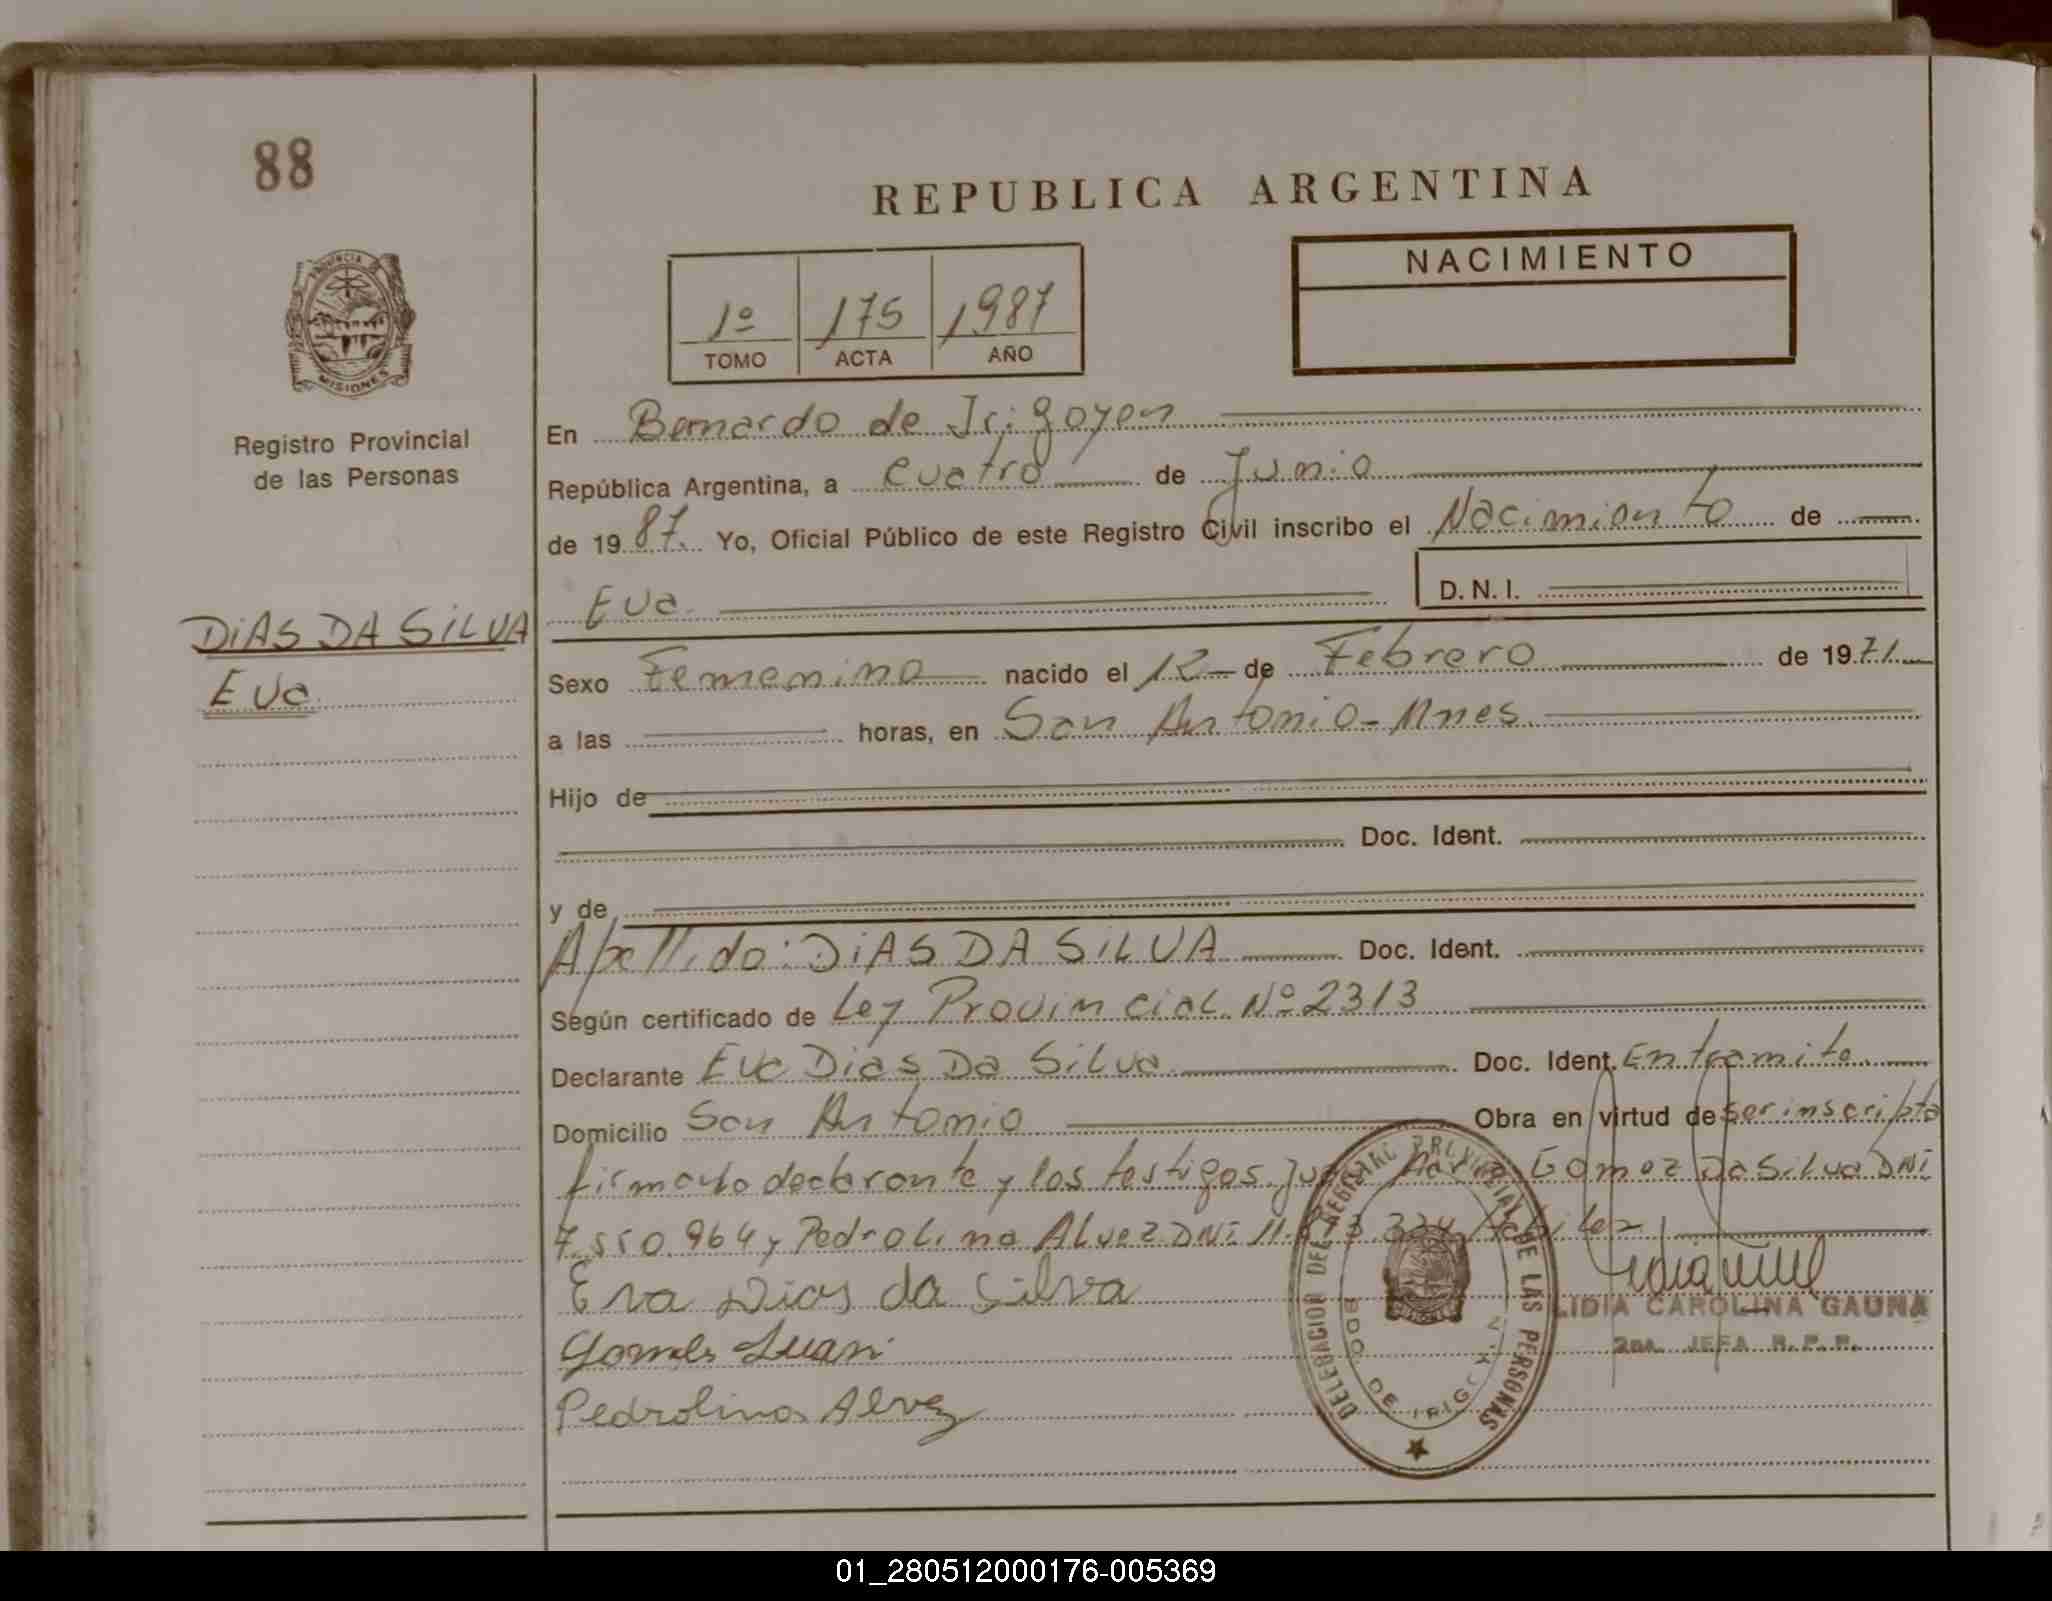 88
REPUBLICA ARGENTINA
NACIMIENTO
1º 175 1987
TOMO ACTA AÑO
PROVINCIA DE
MISIONES
Registro Provincial
de las Personas
DiAS DA SiLVA
Eva
En Bernardo de Irigoyen
República Argentina, a cuatro de Junio
de 1987. Yo, Oficial Público de este Registro Civil inscribo el Nacimiento de
Eva D.N.I.
Sexo Femenino nacido el 12 de Febrero de 1971
a las horas, en San Antonio - Mnes
Hijo de
Doc. Ident.
y de
Apellido: DiAS DA SiLVA Doc. Ident.
Según certificado de Ley Provincial Nº 2313
Declarante Eva Dias Da Silva Doc. Ident. En tramite
Domicilio San Antonio Obra en virtud de ser inscripta
firman la declarante y los testigos Juan Maria Gomez Da Silva DNi
7.550.964 y Pedrolino Alvez DNi 11. Habiles
Eva Dias da Silva
Gomes Juan
Pedrolino Alvez
DELEGACION DEL REGISTRO PROVINCIAL DE LAS PERSONAS
BDO. DE IRIGOYEN
LIDIA CAROLINA GAUNA
2da. JEFA R.P.P.
01_280512000176-005369